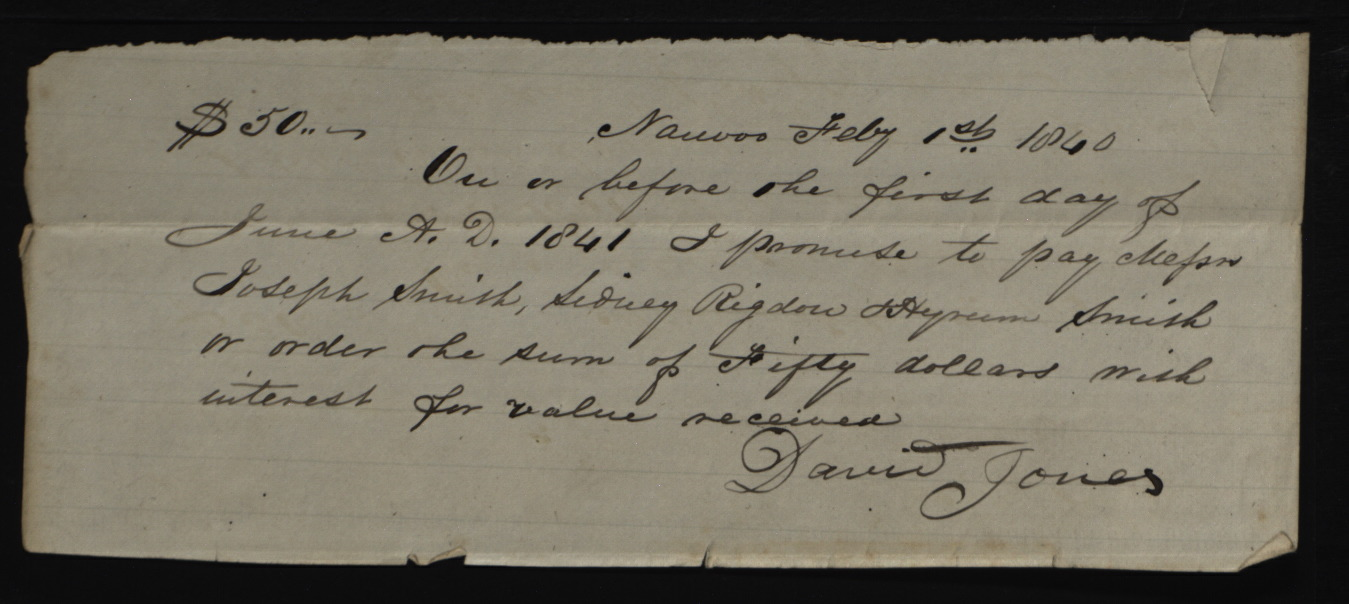 $50..~ Nauvoo Feby 1st 1840
On or before the first day of
June A. D. 1841 I promise to pay Messrs
Joseph Smith, Sidney Rigdon & Hyrum Smith
or order the sum of Fifty dollars with
interest for value received
David Jones